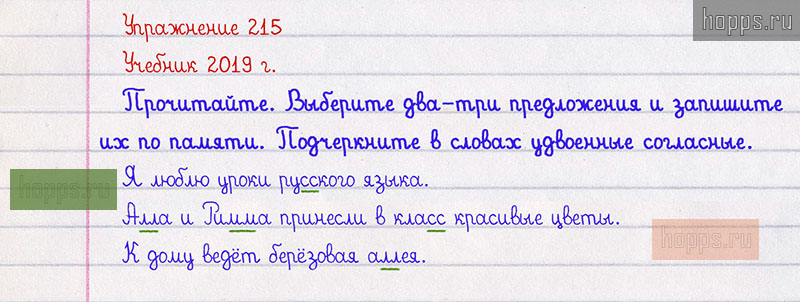 Упражнение 215
hopps.ru
Учебник 2019 г.
Прочитайте. Выберите два-три предложения и запишите
их по памяти. Подчеркните в словах удвоенные согласные.
Я люблю уроки русского языка.
hopps.ru
Алла и Римма принесли в класс красивые цветы.
hopps.ru
К дому ведёт берёзовая аллея.